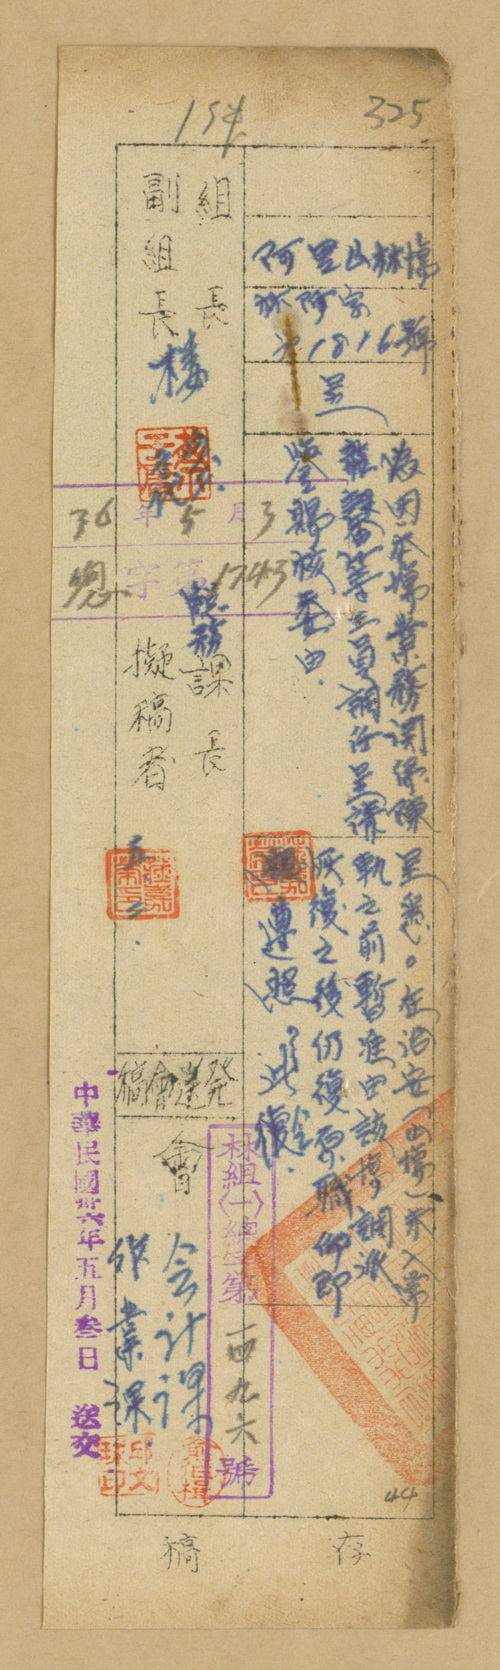 325
154
阿里山林場
林阿字
1816號
呈
為因本場業務關係陳
雜課等三員調任呈請
鑒賜核委由
呈悉。在治安(山場)未入常
軌之前暫准由該場調派
恢復之後仍復原職仰即
遵照此復
組長
副組長
樓
36年5月3
總字第1743
總務課長
擬稿者
五、二、
發送會稿
會
會計課
作業課
林組(一)總字第一四九六號
中華民國卅六年五月叁日 送交
44
存稿